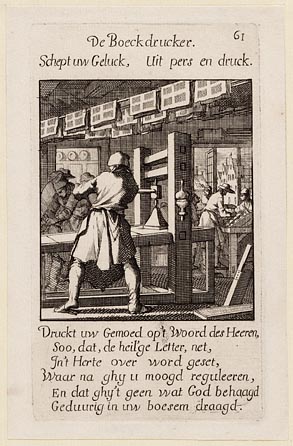 61
De Boeckdrucker.
Schept uw Geluck, Uit pers en druck.
Druckt uw Gemoed op't Woord des Heeren,
Soo, dat, de heil'ge Letter, net,
In't Herte over word geset,
Waar na ghy u moogd reguleeren,
En dat ghy't geen wat God behaagd
Geduurig in uw boesem draagd.